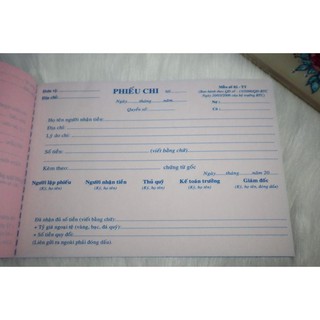 Đơn vị:
PHIẾU CHI
Số:
Mẫu số 02 - TT
Địa chỉ:
Ngày tháng năm
Quyển số:
Nợ :
Có :
Họ tên người nhận tiền
Địa chỉ
Lý do chi
Số tiền (viết bằng chữ)
Kèm theo chứng từ gốc
Ngày tháng năm 20
Người lập phiếu Người nhận tiền Thủ quỹ Kế toán trưởng Giám đốc
(Ký, họ tên) (Ký, họ tên) (Ký, họ tên) (Ký, họ tên) (Ký, họ tên, đóng dấu)
Đã nhận đủ số tiền (viết bằng chữ)
+ Tỷ giá ngoại tệ (vàng, bạc, đá quý)
+ Số tiền quy đổi
(Liên gửi ra ngoài phải đóng dấu)